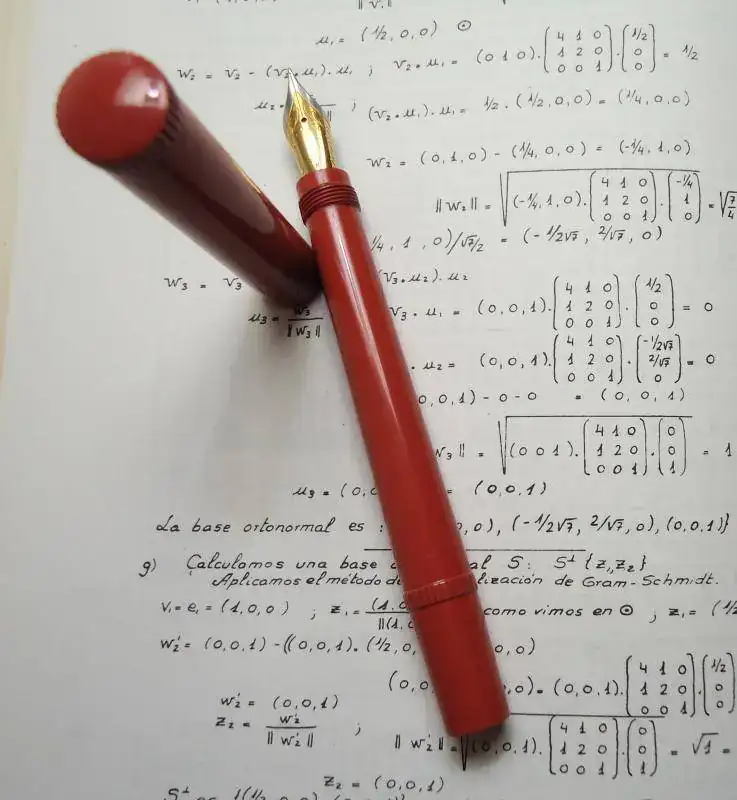 ‖ v. ‖
u₁ = (1/2, 0, 0) ⊙
w₂ = v₂ - (v₂ • u₁) . u₁ ; v₂ • u₁ = (0 1 0) . (4 1 0 / 1 2 0 / 0 0 1) . (1/2 / 0 / 0) = 1/2
u₂ ‖ ; (v₂ • u₁) . u₁ = 1/2 . (1/2, 0, 0) = (1/4, 0, 0)
w₂ = (0, 1, 0) - (1/4, 0, 0) = (-1/4, 1, 0)
‖ w₂ ‖ = √((-1/4, 1, 0) . (4 1 0 / 1 2 0 / 0 0 1) . (-1/4 / 1 / 0)) = √7/4
1/4, 1, 0)/√7/2 = (-1/2√7, 2/√7, 0)
w₃ = v₃ (v₃ • u₂) . u₂
u₃ = w₃ / ‖ w₃ ‖ v₃ • u₁ = (0, 0, 1) . (4 1 0 / 1 2 0 / 0 0 1) . (1/2 / 0 / 0) = 0
• u₂ = (0, 0, 1) . (4 1 0 / 1 2 0 / 0 0 1) . (-1/2√7 / 2/√7 / 0) = 0
0, 0, 1) - 0 - 0 = (0, 0, 1)
w₃ ‖ = √((0 0 1) . (4 1 0 / 1 2 0 / 0 0 1) . (0 / 0 / 1)) = 1
u₃ = (0, 0 = (0, 0, 1)
La base ortonormal es : 0, 0), (-1/2√7, 2/√7, 0), (0, 0, 1)}
g) Calculamos una base al S: S⊥ {z₁, z₂}
Aplicamos el método de lización de Gram-Schmidt.
v₁ = e₁ = (1, 0, 0) ; z₁ = (1, 0 / ‖(1, como vimos en ⊙ ; z₁ = (1/2
w₂' = (0, 0, 1) - ((0, 0, 1) . (1/2, 0, 0, 0)
(0, 0, , 0) = (0, 0, 1) . (4 1 0 / 1 2 0 / 0 0 1) . (1/2 / 0 / 0)
w₂' = (0, 0, 1)
z₂ = w₂' / ‖ w₂' ‖ ; ‖ w₂' ‖ = √((0, 0, 1) . (4 1 0 / 1 2 0 / 0 0 1) . (0 / 0 / 1)) = √1 =
z₂ = (0, 0, 1)
S⊥